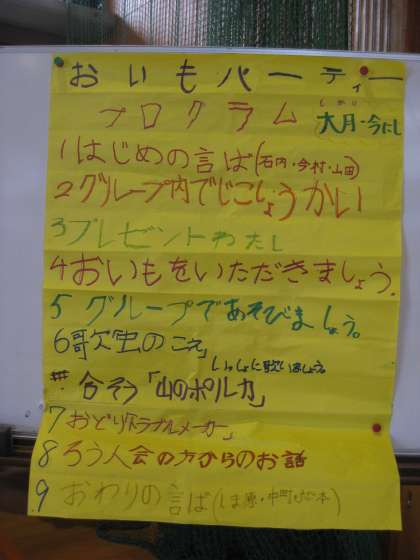 おいもパーティー
プログラム 大月・今にし
しかい
1 はじめの言ば(石内・今村・山田)
2 グループ内でじこしょうかい
3 プレゼントわたし
4 おいもをいただきましょう。
5 グループであそびましょう。
6 歌 虫のこえ
いっしょに歌いましょう。
合そう「山のポルカ」
7 おどり「トラブルメーカー」
8 ろう人会の方からのお話
9 おわりの言ば(しま原・中町・本)